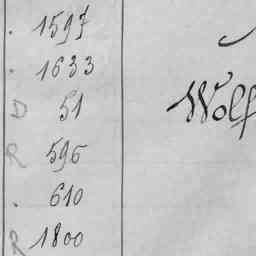 . 1597
. 1633
D 51 Wolf
R 596
. 610
R 1800